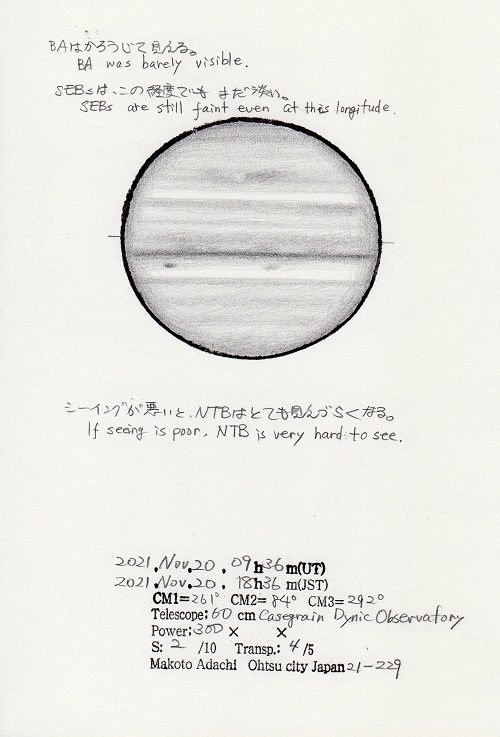 BAはかろうじて見える。
BA was barely visible.
SEBsは、この経度でも まだ淡い。
SEBs are still faint even at this longitude.
シーイングが悪いと、NTBはとても見んづらくなる。
If seeing is poor, NTB is very hard to see.
2021.Nov.20. 09h36m(UT)
2021.Nov.20. 18h36m(JST)
CM1=261° CM2=84° CM3=292°
Telescope:60 cm Casegrain Dynic Observatory
Power:300× ×
S: 2 /10 Transp.: 4/5
Makoto Adachi Ohtsu city Japan 21-229